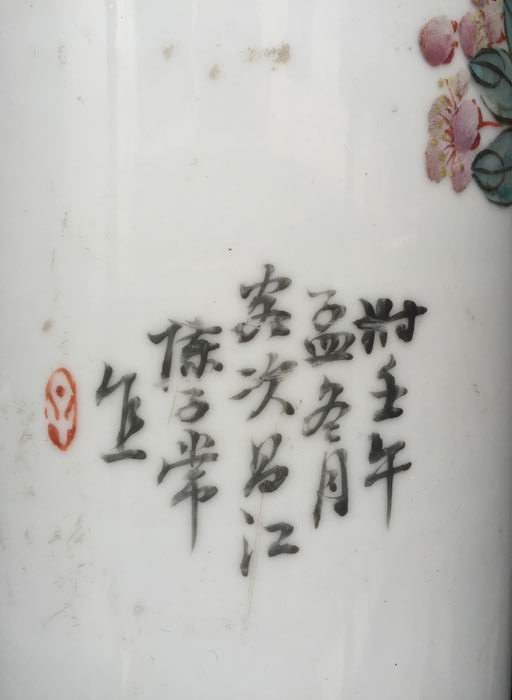 時壬午
孟冬月
客次昌江
陈子常
作